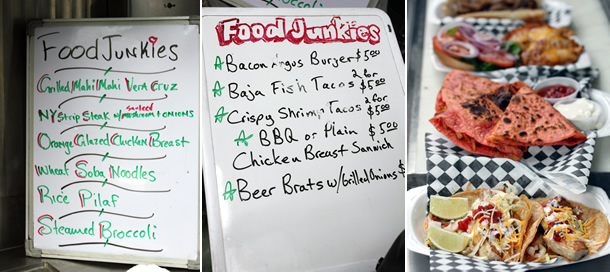 Food Junkies
Grilled Mahi Mahi Vera Cruz
Sautéed
NY Strip Steak w/ mushroom & onions
Orange Glazed Chicken Breast
Wheat Soba Noodles
Rice Pilaf
Steamed Broccoli
Food Junkies
A Bacon Angus Burger $5.00
A Baja Fish Tacos 2 for $5.00
A Crispy Shrimp Tacos 2 for $5.00
A BBQ or Plain $5.00
Chicken Breast Sanwich
A Beer Brats w/Grilled Onions $